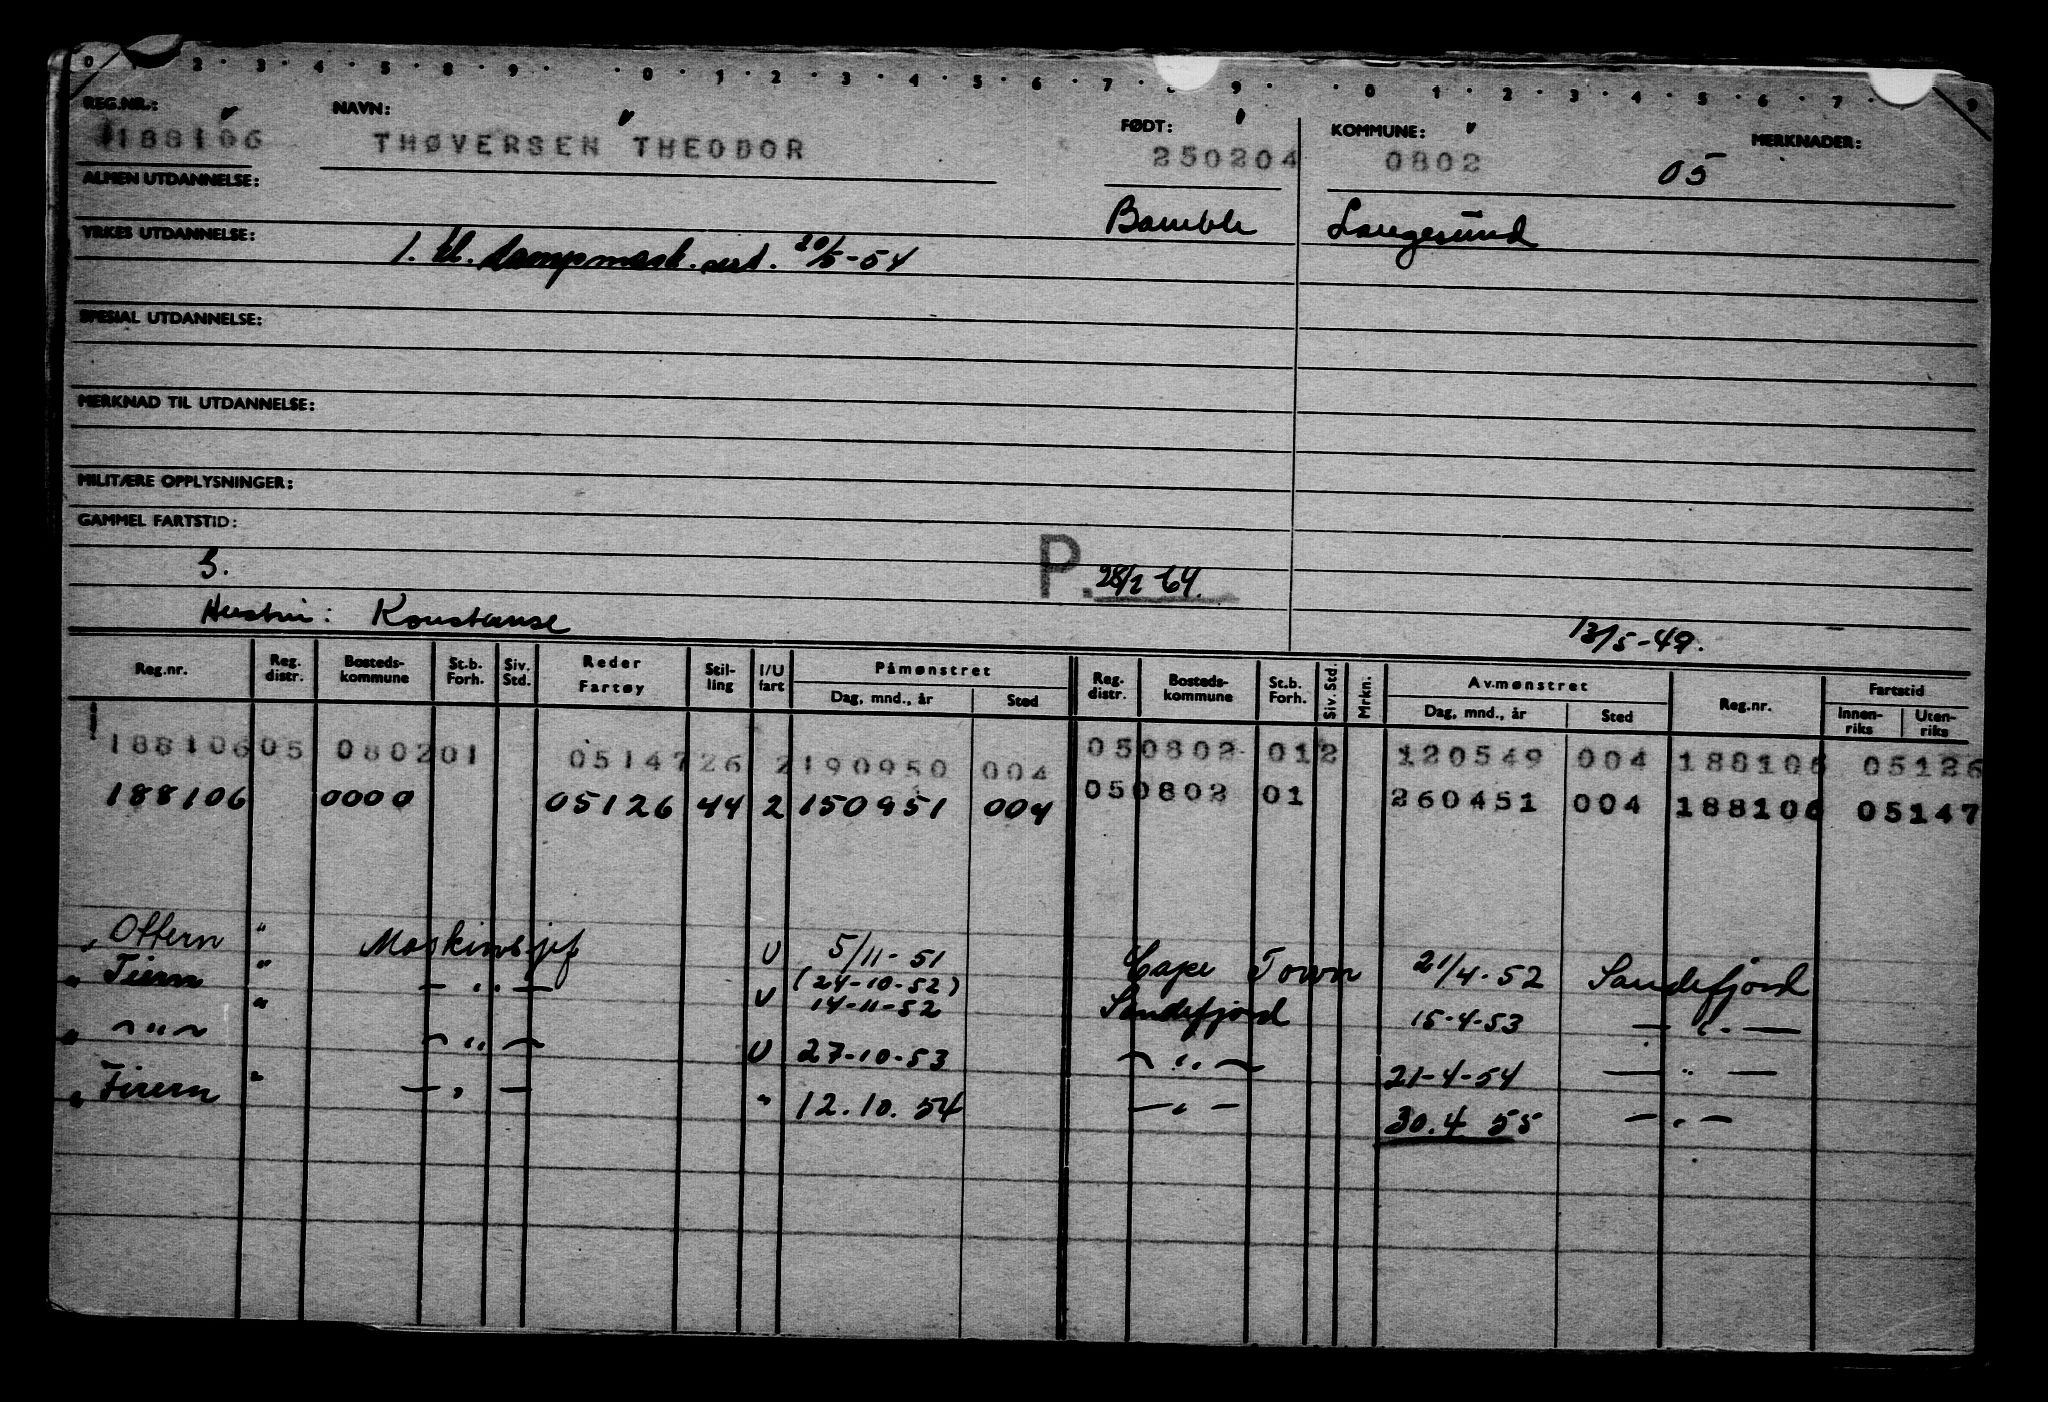 0 1 2 · 3 · 4 · 5 · 8 · 9 · · 0 · 1 · 2 · 3 · 4 · 5 · 6 · 7 · 9 · · 0 · 1 · 2 · 3 · 4 · 5 · 6 · 7 · 9
REG.NR.: NAVN: FØDT: KOMMUNE: MERKNADER:
188106 THØVERSEN THEODOR 250204 0802 05
ALMEN UTDANNELSE:
Bamble Langesund
YRKES UTDANNELSE:
1. kl. dampmask. sert. 20/5-54
SPESIAL UTDANNELSE:
MERKNAD TIL UTDANNELSE:
MILITÆRE OPPLYSNINGER:
GAMMEL FARTSTID:
P. 28/2-64.
Hustru: Konstanse 13/5-49.
Reg.nr. Reg. distr. Bosteds- kommune St.b. Forh. Siv. Std. Reder Fartøy Stil- ling I/U fart Påmønstret Dag, mnd., år Sted Reg- distr. Bosteds- kommune St.b. Forh. Siv. Std. Mrkn. Avmønstret Dag, mnd., år Sted Reg.nr. Fartstid Innen- riks Uten- riks
188106 05 0802 01 05147 26 2 190950 004 05 0802 01 2 120549 004 188106 05126
188106 0000 05126 44 2 150951 004 05 0802 01 260451 004 188106 05147
" Ottern " Maskinsjef U 5/11-51 Cape Town 21/4-52 Sandefjord
(24-10-52)
" " — " — U 14-11-52 Sandefjord 15-4-53 — " —
" — " — — " — U 27-10-53 — " — 21-4-54 — " —
" " — " — " 12.10.54 — " — 30.4 55 — " —